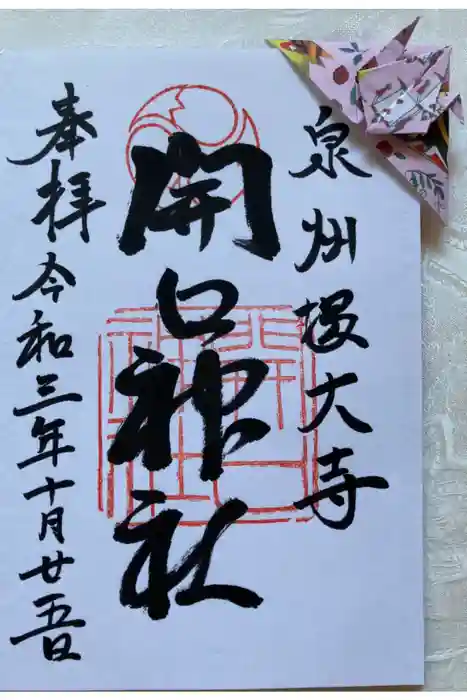 泉州堺大寺
開口神社
奉拝 令和三年十月廿五日
開口神社